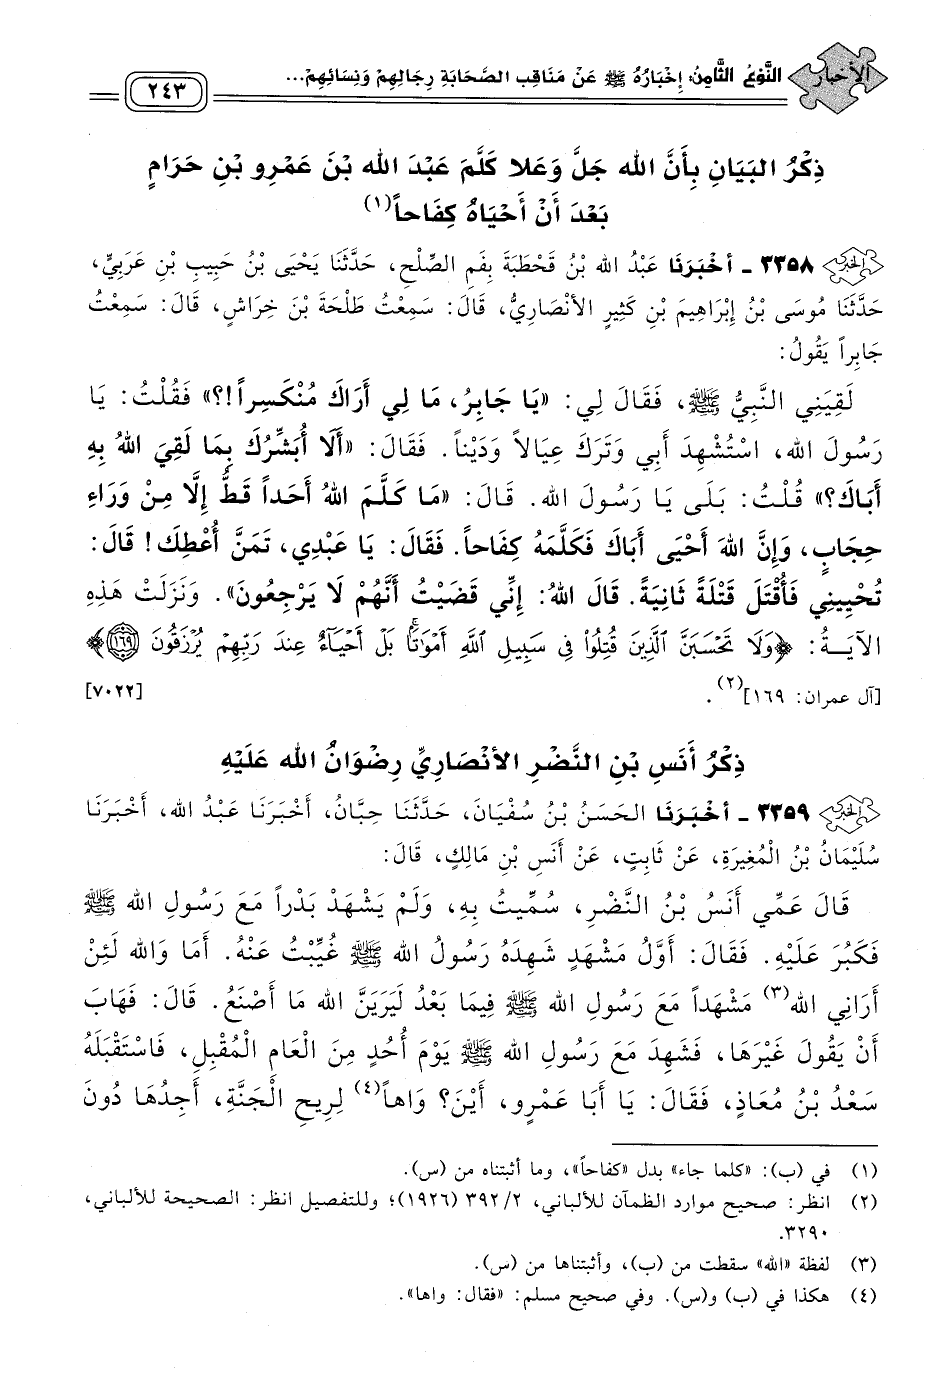 الأخبار
النَّوْعُ الثَّامِنُ: إِخْبَارُهُ ﷺ عَنْ مَنَاقِبِ الصَّحَابَةِ رِجَالِهِمْ وَنِسَائِهِمْ...
٢٤٣
ذِكْرُ البَيَانِ بِأَنَّ الله جَلَّ وَعَلا كَلَّمَ عَبْدَ الله بْنَ عَمْرِو بْنِ حَرَامٍ
بَعْدَ أَنْ أَحْيَاهُ كِفَاحاً(١)
٣٣٥٨ - أَخْبَرَنَا عَبْدُ الله بْنُ قَحْطَبَةَ بِفَمِ الصِّلْحِ، حَدَّثَنَا يَحْيَى بْنُ حَبِيبِ بْنِ عَرَبِيٍّ،
حَدَّثَنَا مُوسَى بْنُ إِبْرَاهِيمَ بْنِ كَثِيرٍ الأَنْصَارِيُّ، قَالَ: سَمِعْتُ طَلْحَةَ بْنَ خِرَاشٍ، قَالَ: سَمِعْتُ
جَابِراً يَقُولُ:
لَقِيَنِي النَّبِيُّ ﷺ، فَقَالَ لِي: «يَا جَابِرُ، مَا لِي أَرَاكَ مُنْكَسِراً!؟» فَقُلْتُ: يَا
رَسُولَ الله، اسْتُشْهِدَ أَبِي وَتَرَكَ عِيَالاً وَدَيْناً. فَقَالَ: «أَلَا أُبَشِّرُكَ بِمَا لَقِيَ اللهُ بِهِ
أَبَاكَ؟» قُلْتُ: بَلَى يَا رَسُولَ الله. قَالَ: «مَا كَلَّمَ اللهُ أَحَداً قَطُّ إِلَّا مِنْ وَرَاءِ
حِجَابٍ، وَإِنَّ اللهَ أَحْيَى أَبَاكَ فَكَلَّمَهُ كِفَاحاً. فَقَالَ: يَا عَبْدِي، تَمَنَّ أُعْطِكَ! قَالَ:
تُحْيِينِي فَأُقْتَلَ قَتْلَةً ثَانِيَةً. قَالَ اللهُ: إِنِّي قَضَيْتُ أَنَّهُمْ لَا يَرْجِعُونَ». وَنَزَلَتْ هَذِهِ
الآيَةُ: ﴿وَلَا تَحْسَبَنَّ ٱلَّذِينَ قُتِلُوا۟ فِى سَبِيلِ ٱللَّهِ أَمْوَٰتًۢا بَلْ أَحْيَآءٌ عِندَ رَبِّهِمْ يُرْزَقُونَ ١٦٩﴾
[آل عمران: ١٦٩](٢). [٧٠٢٢]
ذِكْرُ أَنَسِ بْنِ النَّضْرِ الأَنْصَارِيِّ رِضْوَانُ الله عَلَيْهِ
٣٣٥٩ - أَخْبَرَنَا الحَسَنُ بْنُ سُفْيَانَ، حَدَّثَنَا حِبَّانُ، أَخْبَرَنَا عَبْدُ الله، أَخْبَرَنَا
سُلَيْمَانُ بْنُ الْمُغِيرَةِ، عَنْ ثَابِتٍ، عَنْ أَنَسِ بْنِ مَالِكٍ، قَالَ:
قَالَ عَمِّي أَنَسُ بْنُ النَّضْرِ، سُمِّيتُ بِهِ، وَلَمْ يَشْهَدْ بَدْراً مَعَ رَسُولِ الله ﷺ
فَكَبُرَ عَلَيْهِ. فَقَالَ: أَوَّلُ مَشْهَدٍ شَهِدَهُ رَسُولُ الله ﷺ غُيِّبْتُ عَنْهُ. أَمَا وَالله لَئِنْ
أَرَانِي الله(٣) مَشْهَداً مَعَ رَسُولِ الله ﷺ فِيمَا بَعْدُ لَيَرَيَنَّ الله مَا أَصْنَعُ. قَالَ: فَهَابَ
أَنْ يَقُولَ غَيْرَهَا، فَشَهِدَ مَعَ رَسُولِ الله ﷺ يَوْمَ أُحُدٍ مِنَ الْعَامِ الْمُقْبِلِ، فَاسْتَقْبَلَهُ
سَعْدُ بْنُ مُعَاذٍ، فَقَالَ: يَا أَبَا عَمْرٍو، أَيْنَ؟ وَاهاً(٤) لِرِيحِ الْجَنَّةِ، أَجِدُهَا دُونَ
(١) في (ب): «كلما جاء» بدل «كفاحاً»، وما أثبتناه من (س).
(٢) انظر: صحيح موارد الظمآن للألباني، ٣٩٢/٢ (١٩٢٦)؛ وللتفصيل انظر: الصحيحة للألباني،
٣٢٩٠.
(٣) لفظة «الله» سقطت من (ب)، وأثبتناها من (س).
(٤) هكذا في (ب) و(س). وفي صحيح مسلم: «فقال: واها».